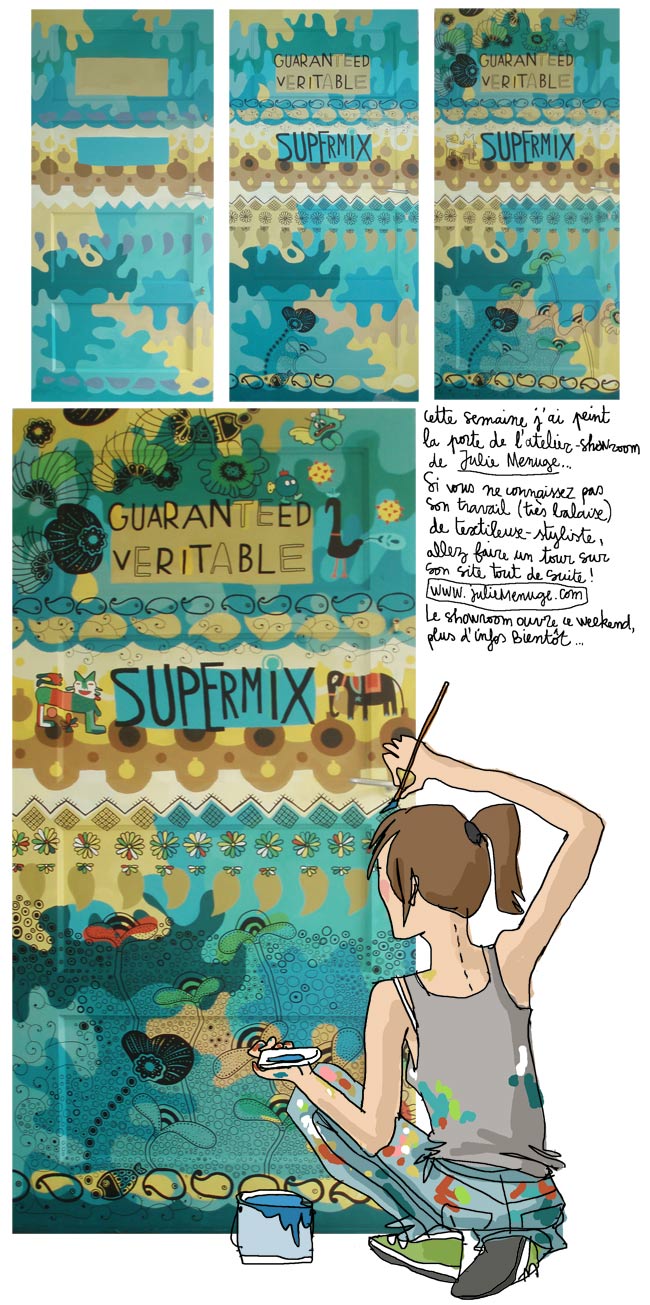 GUARANTEED
VERITABLE
SUPERMIX
GUARANTEED
VERITABLE
SUPERMIX
GUARANTEED
VERITABLE
SUPERMIX
cette semaine j'ai peint
la porte de l'atelier-showroom
de Julie Menuge...
Si vous ne connaissez pas
son travail (très balaise)
de textileuse-styliste,
allez faire un tour sur
son site tout de suite !
www.julieMenuge.com
Le showroom ouvre ce weekend,
plus d'infos Bientôt...